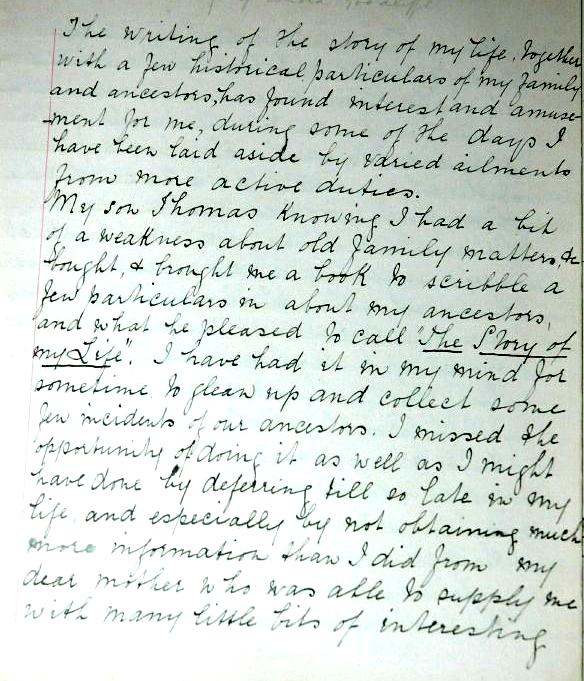 The writing of the story of my life, together
with a few historical particulars of my family
and ancestors, has found interest and amuse-
ment for me, during some of the days I
have been laid aside by varied ailments
from more active duties.
My son Thomas knowing I had a bit
of a weakness about old family matters, &c
bought, & brought me a book to scribble a
few particulars in about my ancestors,
and what he pleased to call "The Story of
my Life". I have had it in my mind for
sometime to glean up and collect some
few incidents of our ancestors. I missed the
opportunity of doing it as well as I might
have done by deferring till so late in my
life, and especially by not obtaining much
more information than I did from my
dear mother who was able to supply me
with many little bits of interesting